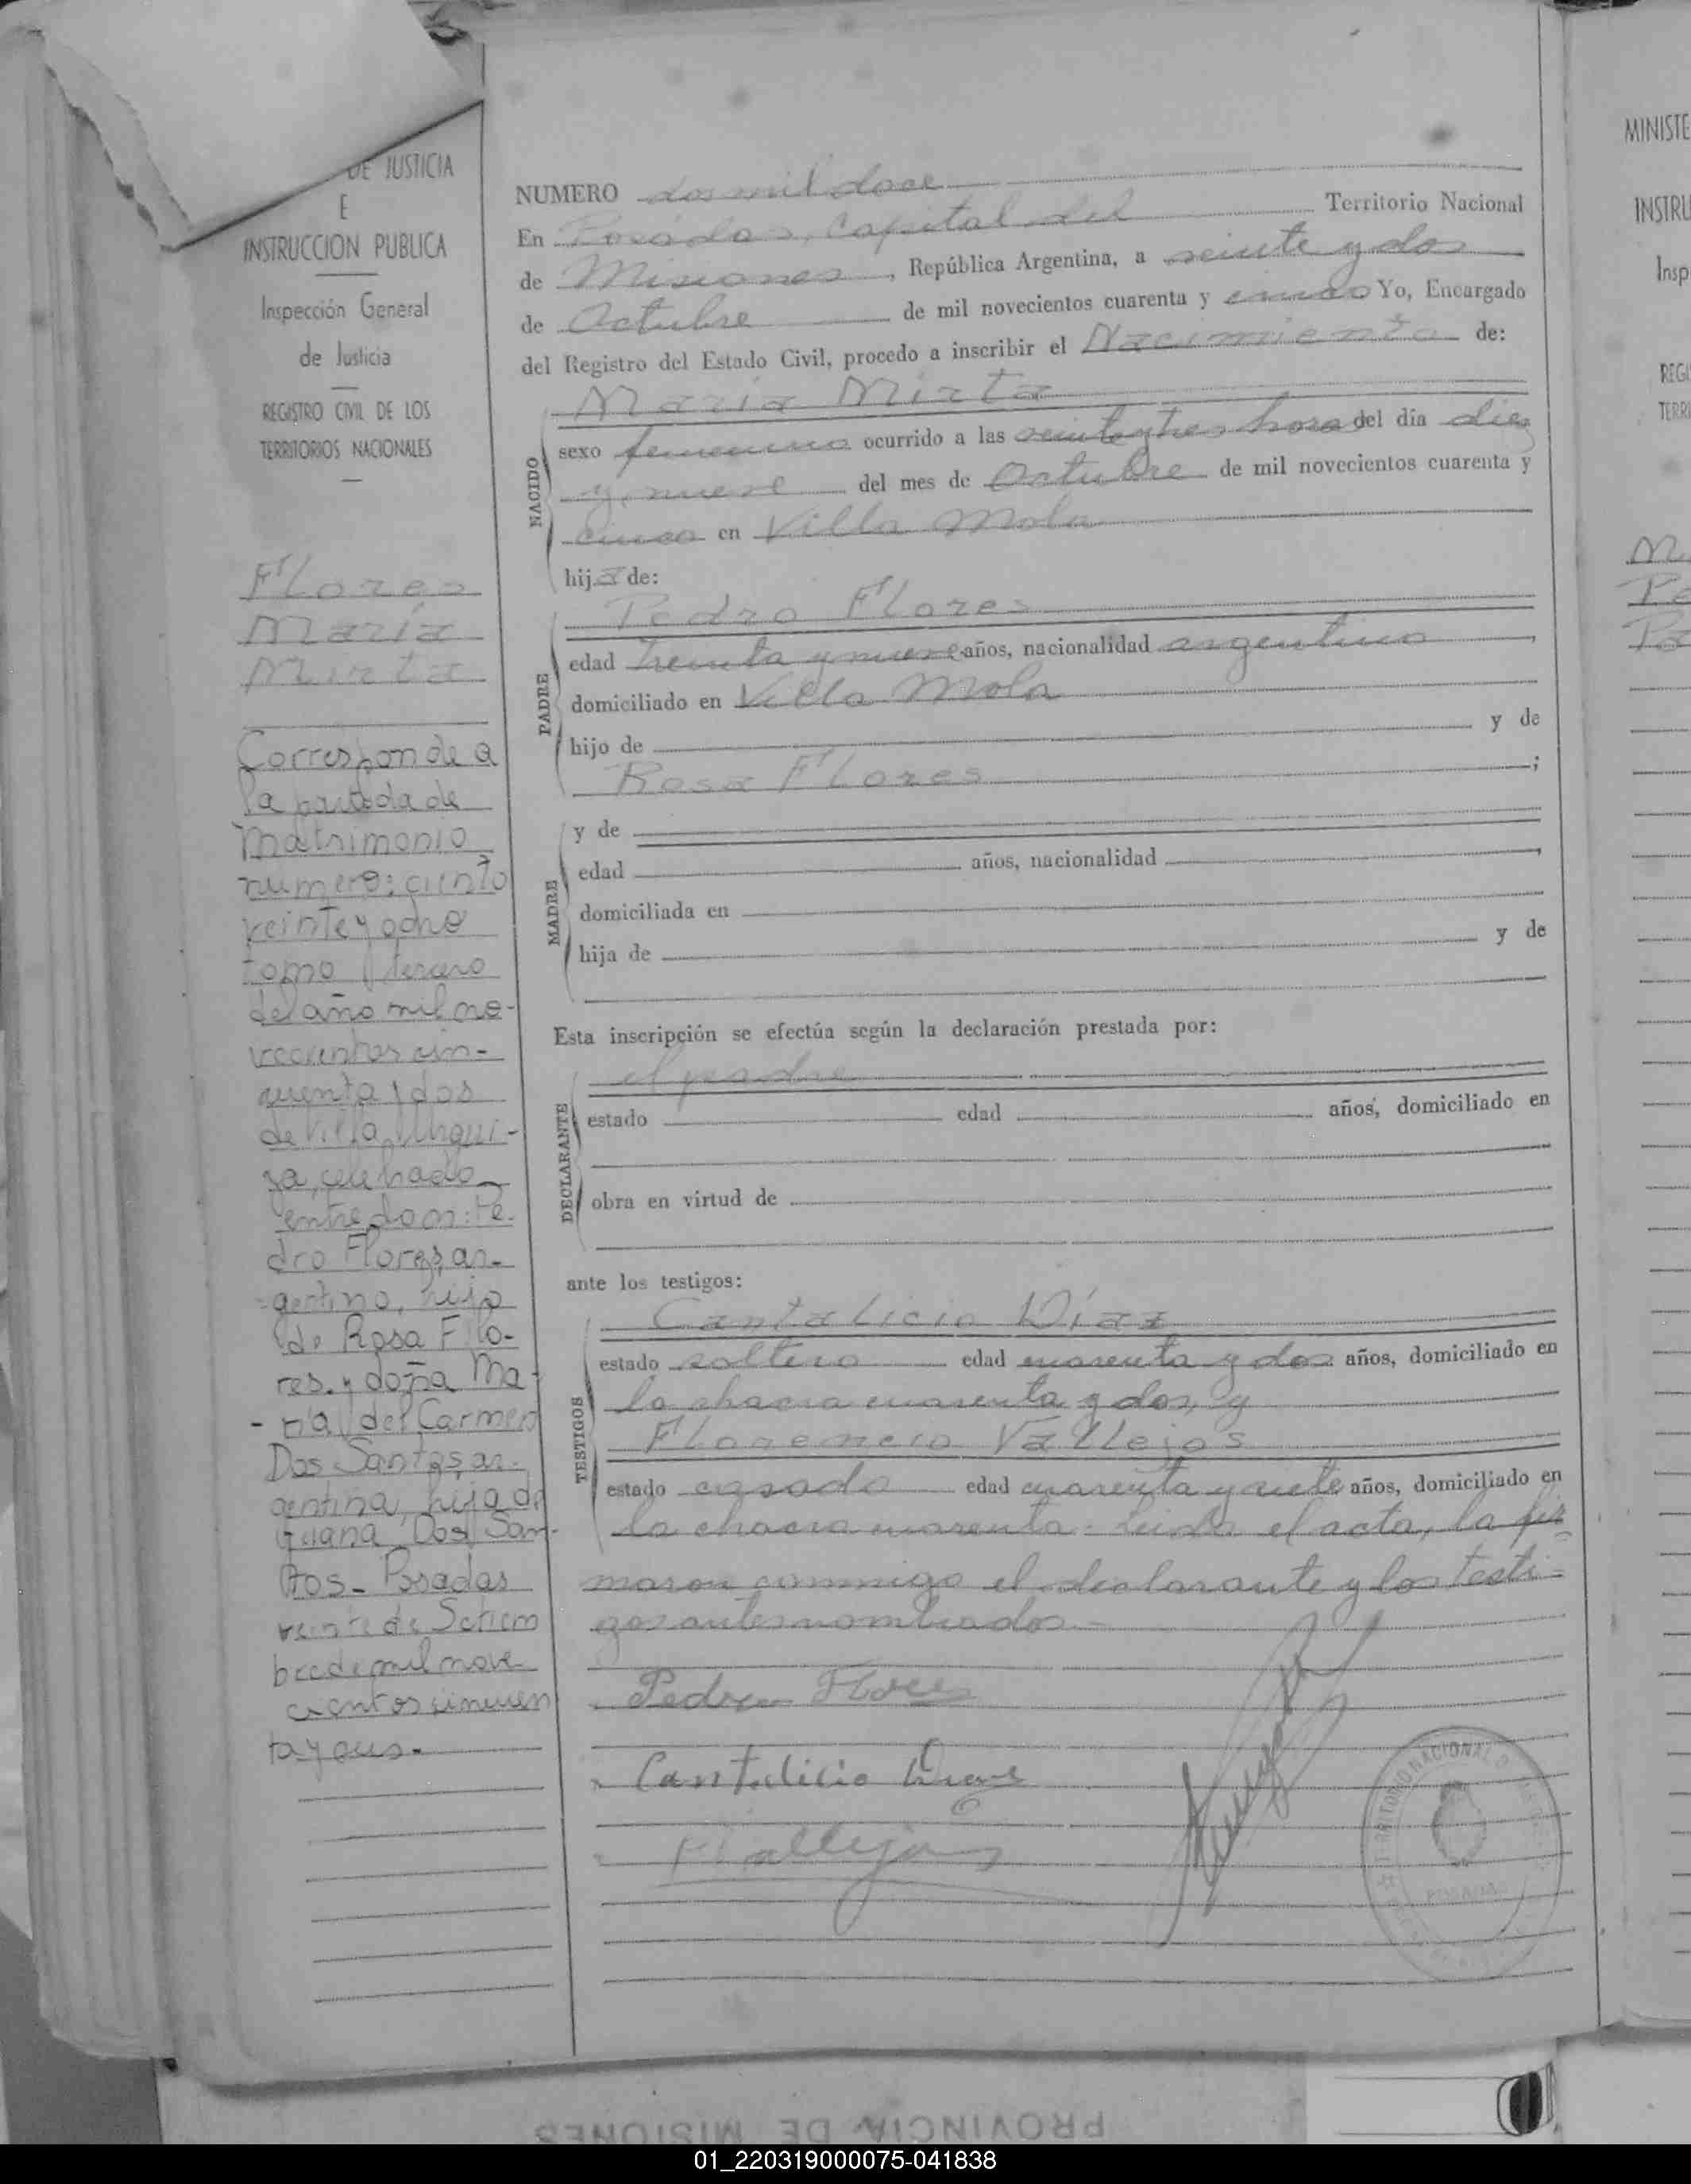 DE JUSTICIA
E
INSTRUCCION PUBLICA
Inspección General
de Justicia
REGISTRO CIVIL DE LOS
TERRITORIOS NACIONALES
Flores
María
Mirta
Corresponde a
la partida de
Matrimonio
numero: ciento
veinte y ocho
tomo tercero
del año mil no-
vecientos cin-
cuenta y dos
de Villa Urqui-
za, celebrado
entre don: Pe-
dro Flores, ar-
gentino, hijo
de Rosa Flo-
res. y doña Ma-
ría del Carmen
Dos Santos, ar-
gentina, hija de
Dos San-
tos_ Posadas
veinte de Setiem
bre de mil nove
cientos cincuen
ta y
NUMERO dos mil doce
En Posadas, Capital del Territorio Nacional
de Misiones, República Argentina, a veinte y dos
de Octubre de mil novecientos cuarenta y cinco Yo, Encargado
del Registro del Estado Civil, procedo a inscribir el Nacimiento de:
María Mirta
NACIDO
sexo femenino ocurrido a las veinte y tres horas del día diez
y nueve del mes de Octubre de mil novecientos cuarenta y
cinco en Villa Mola
hija de:
Pedro Flores
PADRE
edad treinta y nueve años, nacionalidad argentino,
domiciliado en Villa Mola
hijo de y de
Rosa Flores;
y de
MADRE
edad años, nacionalidad,
domiciliada en
hija de y de
Esta inscripción se efectúa según la declaración prestada por:
el padre
DECLARANTE
estado edad años, domiciliado en
obra en virtud de
ante los testigos:
Cantalicio Díaz
TESTIGOS
estado soltero edad cuarenta y dos años, domiciliado en
la chacra cuarenta y dos, y
Florencio Vallejos
estado casado edad cuarenta y siete años, domiciliado en
la chacra cuarenta. Leida el acta, la fir
maron conmigo el declarante y los testi-
gos antes nombrados.-
Pedro Flores
Cantalicio Diaz
FVallejos
TERRITORIO NACIONAL D
POSADAS
MINISTE
INSTRU
Insp
REGI
TERRI
PROVINCIA DE MISIONES
01_220319000075-041838